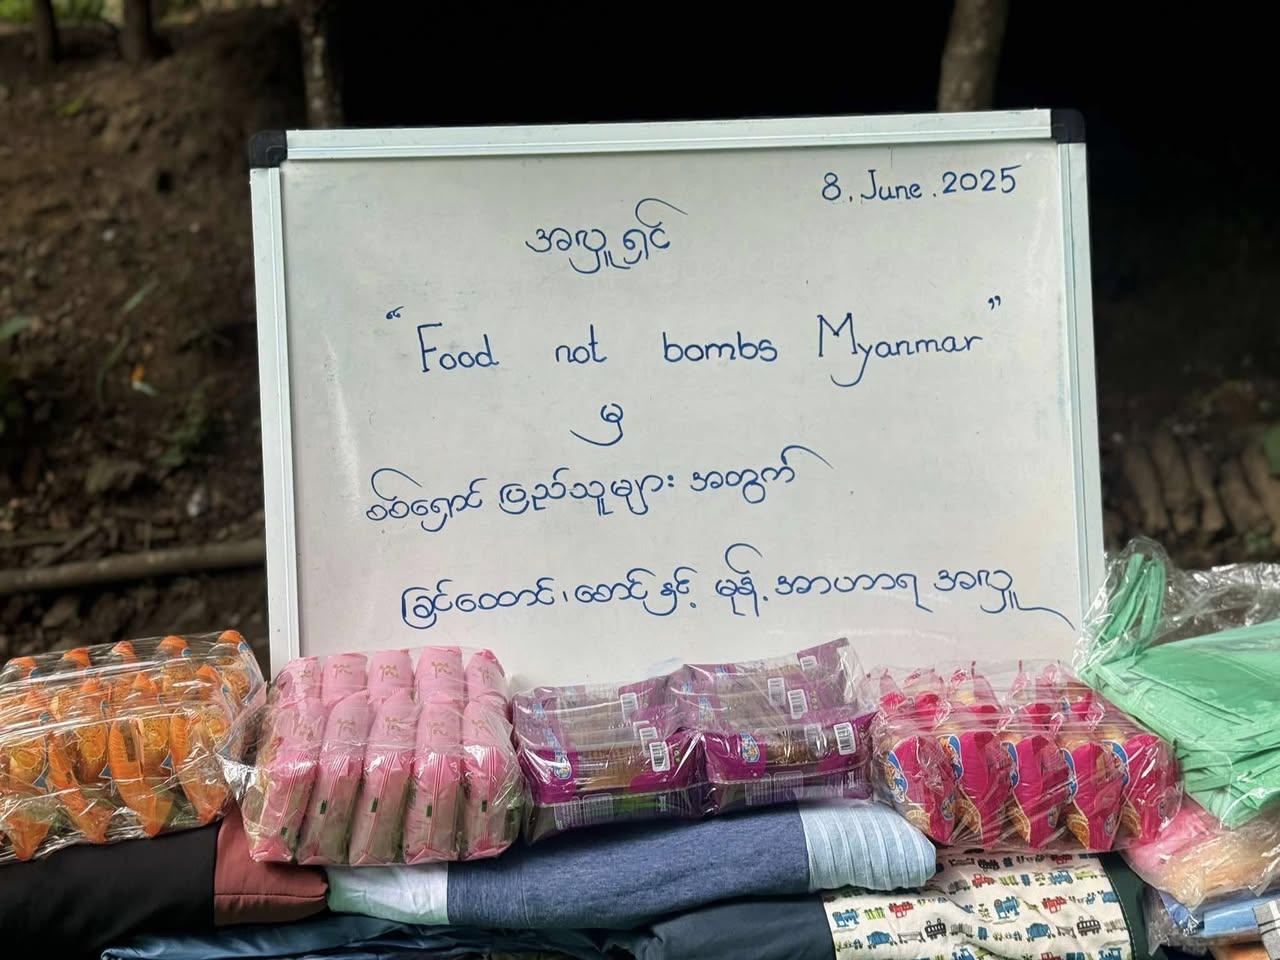 8. June. 2025
အလှူရှင်
“Food not bombs Myanmar”
မှ
စစ်ရှောင် ပြည်သူများ အတွက်
ခြင်ထောင်၊ စောင်နှင့် မုန့် အာဟာရ အလှူ